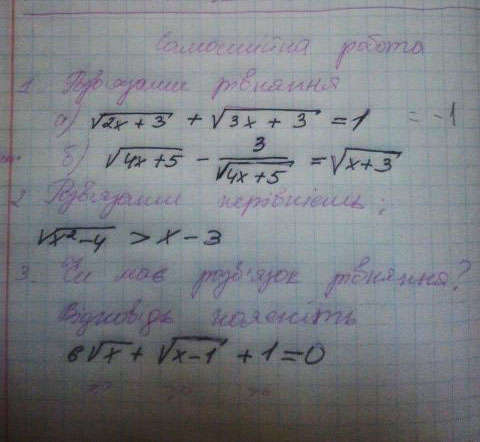 Самостійна работа
1. Розв'язати рівняння
а) √(2x + 3) + √(3x + 3) = 1 = -1
б) √(4x + 5) - 3/√(4x + 5) = √(x + 3)
2 Розв'язати нерівність:
√(x² - 4) > x - 3
3. Чи має розв'язок рівняння?
Відповідь поясніть
6√x + √(x - 1) + 1 = 0